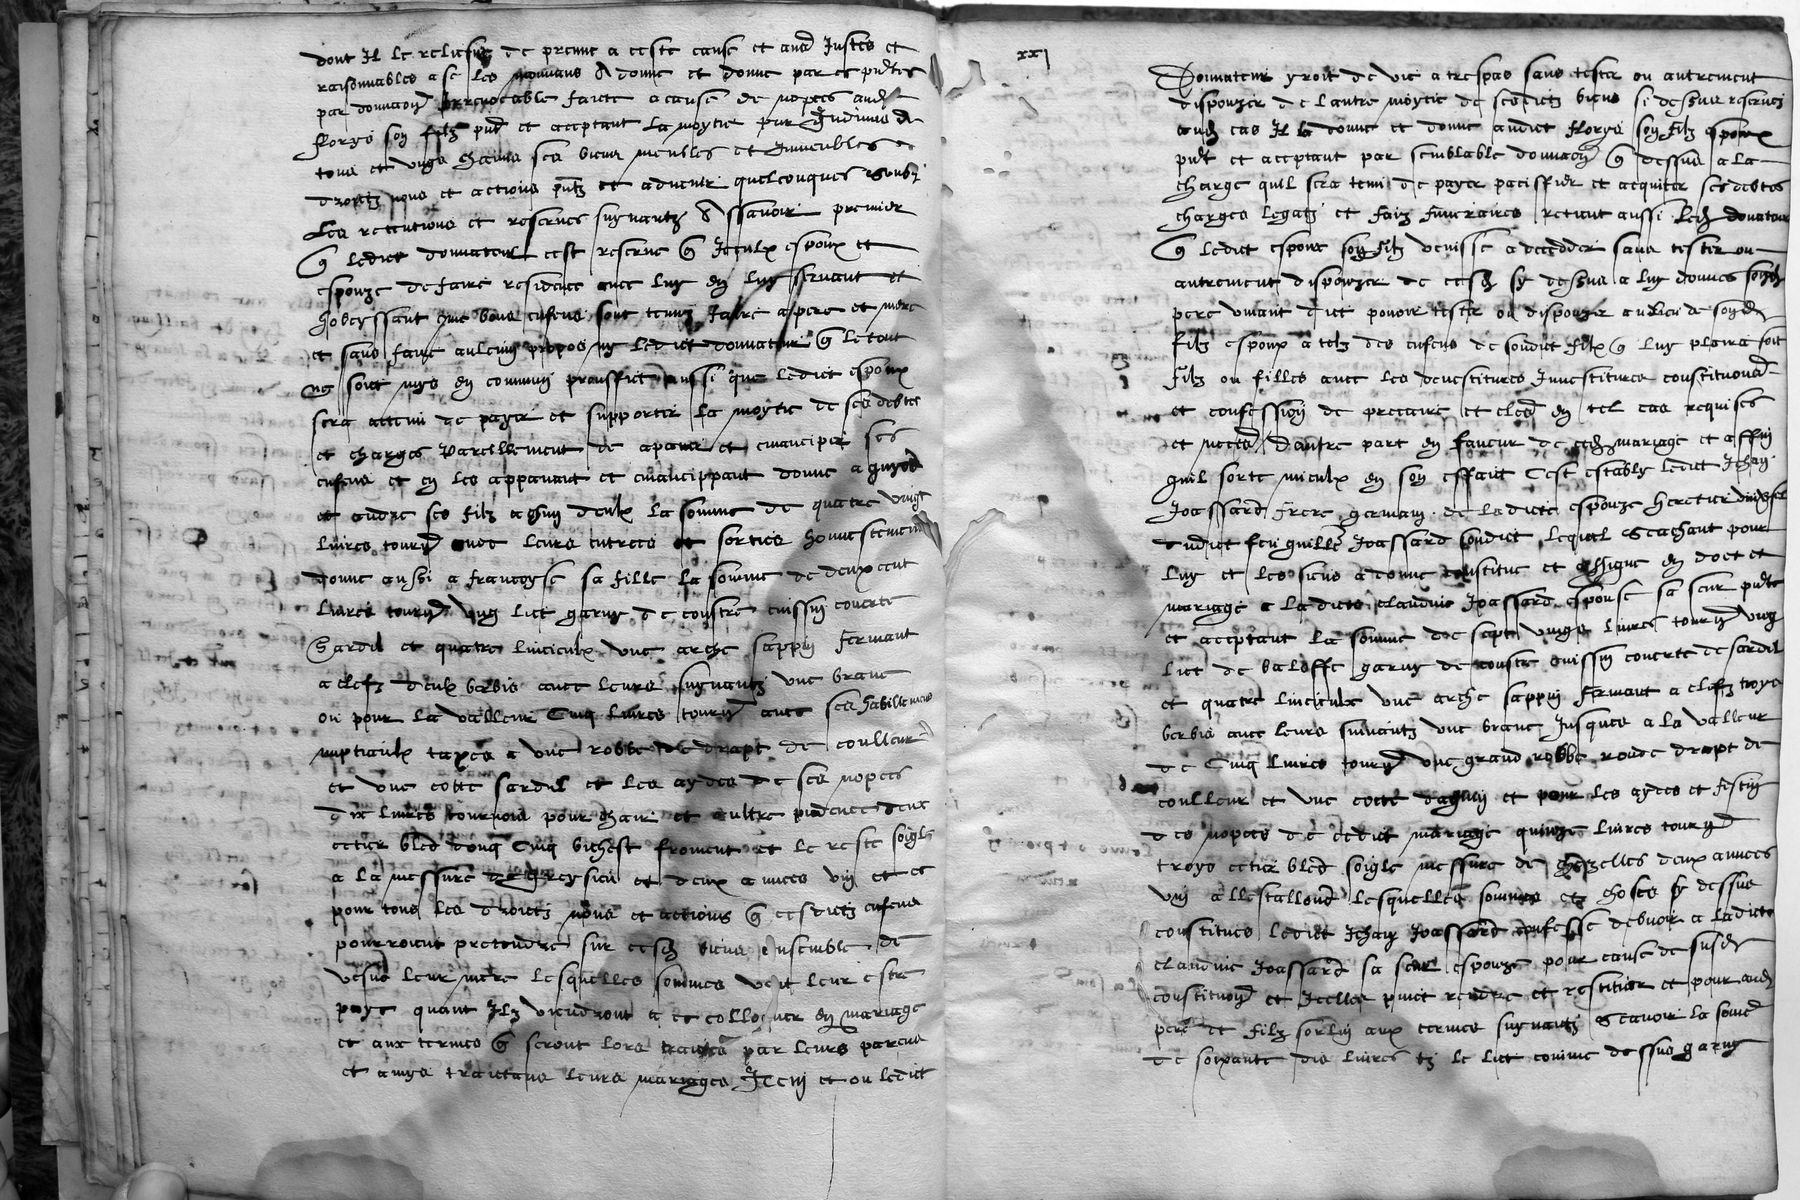 dont Il le reliefve de preuve a ceste cause et aud Justes et
raisonnables a ce les mouvans A donne et donne par ces pntes
par donnaon Irrevocable faicte a cause de nopces aud
florys son filz pnt et acceptant la moytie par Indivis de
tous et ungs chascuns ses biens meubles et Immeubles
droictz noms et actions pntz et advenir quelconques soubz
Les retentions et reserves suyvantz Assavoir premier
q ledict donnateur cest reserve q Iceulx espoux et
espouze de faire residence avec luy en luy servant et
hobeyssant come bons enfens sont tenuz faire a pere et mere
et sans faire aulcung propos ny ledict donnateur q le tout
ne soict mys en commun prouffict aussi que ledict espoux
sera attenu de payer et supporter la moytie de ses debtes
et charges Pareillement de apaner et emanciper ses
enfens et en les appanant et emancippant donne a guyod
et andre ses filz a chun deulx la somme de quatre vingt
livres tourn avec leurs entrees et sorties honnestement
donne aussi a francoyse sa fille la somme de deux cent
livres tourn ung lict garny de coustre cuissin coverte
Sardil et quatre linceulx une arche sappin fermant
a clefz deulx berbis avec leurs suyvantz une brave
ou pour la valleur Cinq livres tourn avec ses habillemens
nuptiaulx taxes a une robbe de drapt de coulleur
et une cotte sardil et les aydes de ses nopces
dix livres tournois pour chair et aultre pidences deux
cetier bled donq Cinq bichest froment et le reste soigle
a la messure de Greysieu et deux annees vin et ce
pour tous les droictz noms et actions q cesdictz enfens
pourroient pretendre sur cesd biens ensemble de
leur mere lesquelles sommes veult leur estre
paye quant Ilz viendront a ce collocquer en mariage
et aux termes q seront lors traictes par leurs parens
et amys traictans leurs mariages Item et ou ledict
xxj
Donnateur yroit de vie a trespas sans tester ou autrement
disposzer de lautre moytie de sesdictz biens si dessus reservez
aud cas Il la donne et donne audict florys son filz espoux
pnt et acceptant par semblable donnaon q dessus a la
charge quil sera tenu de payer paciffier et acquiter ses debtes
charges legatz et faiz funeraires retient aussi led donnateur
q ledict espoux son filz venisse a decedder sans tester ou
autrement disposzer de cesd sy dessus a luy donnes
pere vivant dict pouvoir tester ou disposzer au lieu de sond
filz espoux a telz des enfens de sondict filz q luy plaira soit
filz ou filles avec les devestitures Investitures constituon
et confession de precaire et cles en tel cas requises
et necess Daultre part en faveur de ced mariage et affin
quil sorte mieulx en son effaict Cest estably ledict Jehan
Joassard frere germain de ladicte espouze heretier
dudict feu guille Joassard lequel Scachant pour
luy et les siens a donne constitue et assigne en doct et
mariage a ladicte claudine Joassard espouse sa seur pnte
et acceptant la somme de sept vingts livres tourn ung
lict de baloffe garny de coustre cuissin coverte de sardil
et quatre linceulx une arche sappin fermant a clefz troys
berbis avec leurs suivantz une brave Jusques a la valleur
de Cinq livres tourn une grand robbe roude drapt de
coulleur et une cotte et pour les aydes et festin
des nopces de cedict mariage quinze livres tourn
troys cetier bled soigle messure de deux annees
vin lesquelles sommes et choses sy dessus
constitues ledict Jehan Joassard confesse debvoir a ladicte
claudine Joassard sa seur espouze pour cause de susd
constituon et Icelles pmet rendre et restituer et pour aud
pere et filz sorlin aux termes suyvantz Scavoir la some
de soixante dix livres tz le lict comme dessus garny